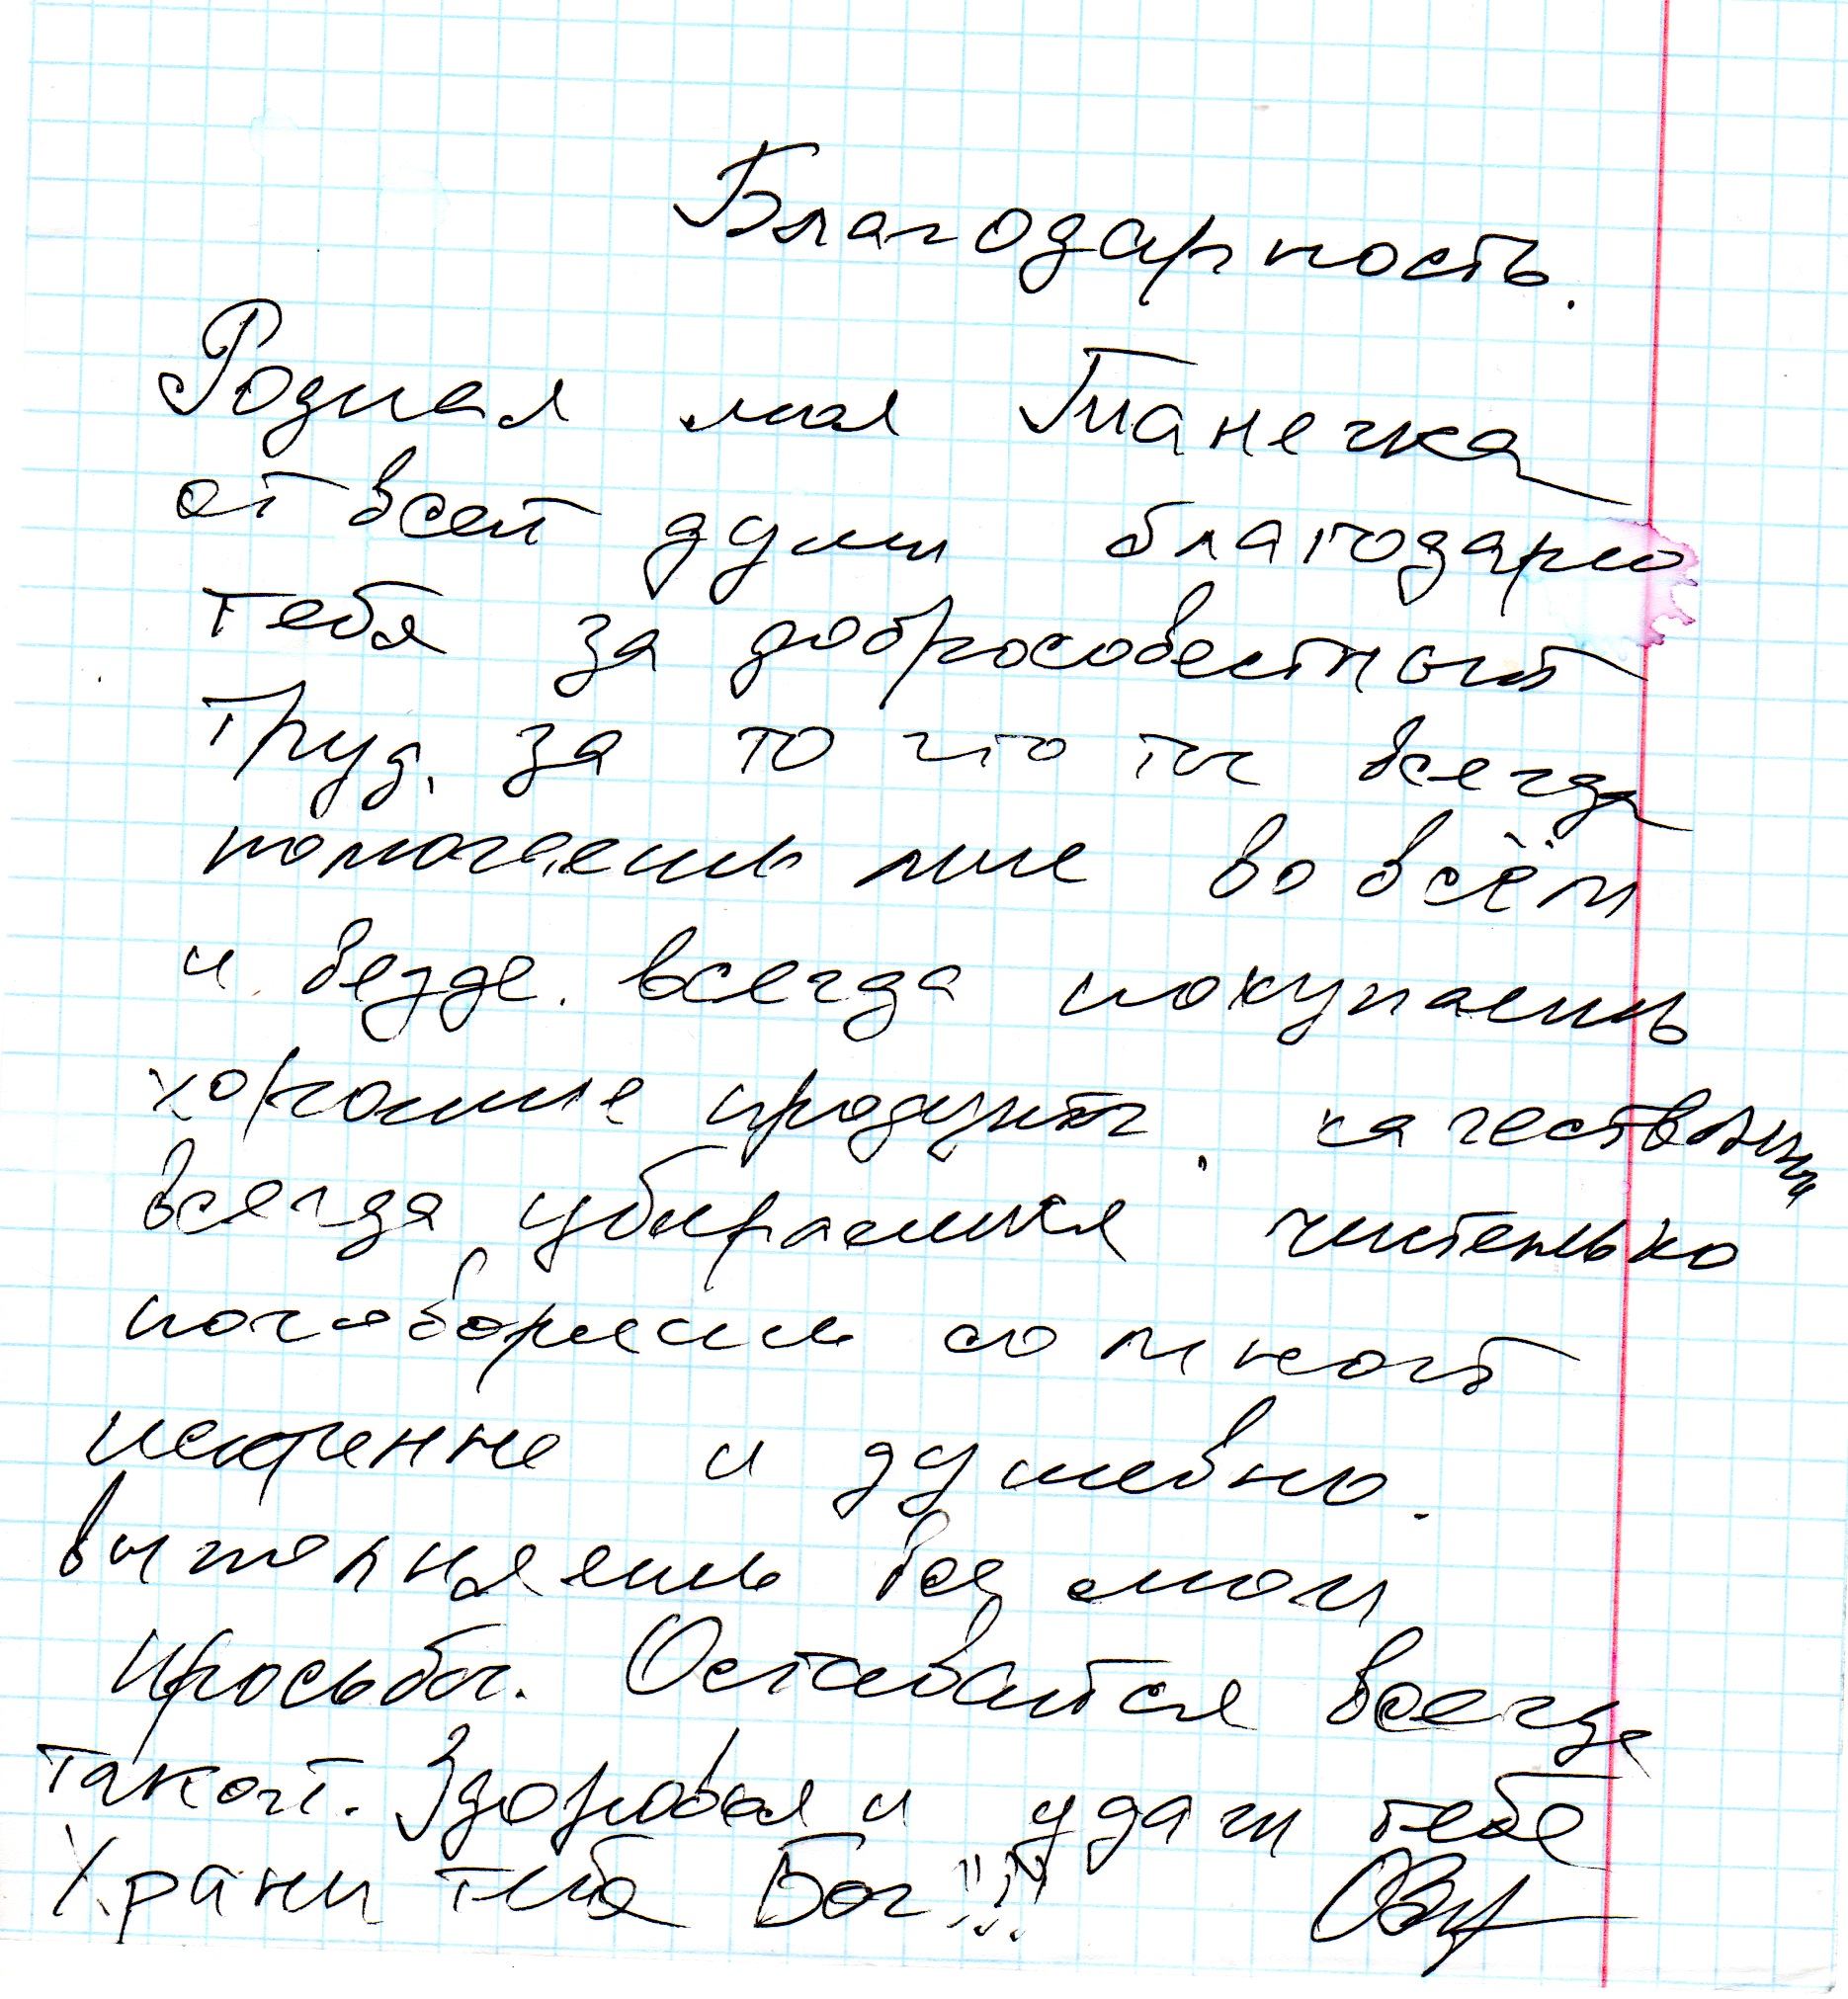 Благодарность.
Родная моя Танечка
от всей души благодарю
тебя за добросовестный
труд, за то что ты всегда
помогаешь мне во всём
и везде. всегда покупаешь
хорошие продукты, качественные
всегда убираешься чистенько
поговоришь со мной
искренне и душевно.
выполняешь все мои
просьбы. Оставайся всегда
такой. Здоровья и удачи тебе
Храни тебя Бог!!!